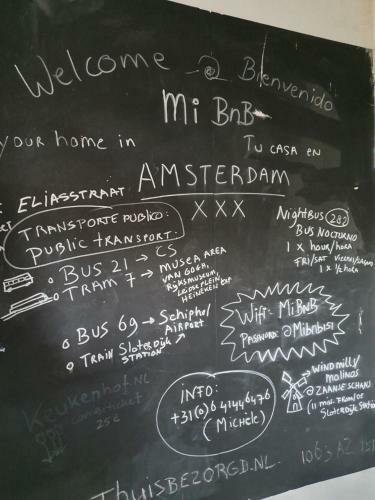 Welcome @ Bienvenido
Mi BnB
your home in
Tu casa en
AMSTERDAM
XXX
ELIASSTRAAT
TRANSPORTE PUBLICO:
PUBLIC TRANSPORT:
BUS 21 → CS
TRAM 7 → MUSEA AREA
VAN GOGH,
RIJKSMUSEUM,
LEIDSEPLEIN
HEINEKEN
BUS 69 → Schiphol
AIRPORT
TRAIN Sloterdijk
STATION
NightBUS 282
BUS NOCTURNO
1 x HOUR/HORA
FRI/SAT VIERNES/SABADO
1 x ½ HORA
Wifi: MiBnB
PASSWORD: @Mibnb151
Keukenhof.NL
combiticket
25€
INFO:
+31(0)6 41446476
(Michèle)
WINDMILLS/
MOLINOS
@ZAANSE SCHANS
(11 min. FROM/OF
Sloterdijk Station
1063 AZ 151
Thuisbezorgd.NL